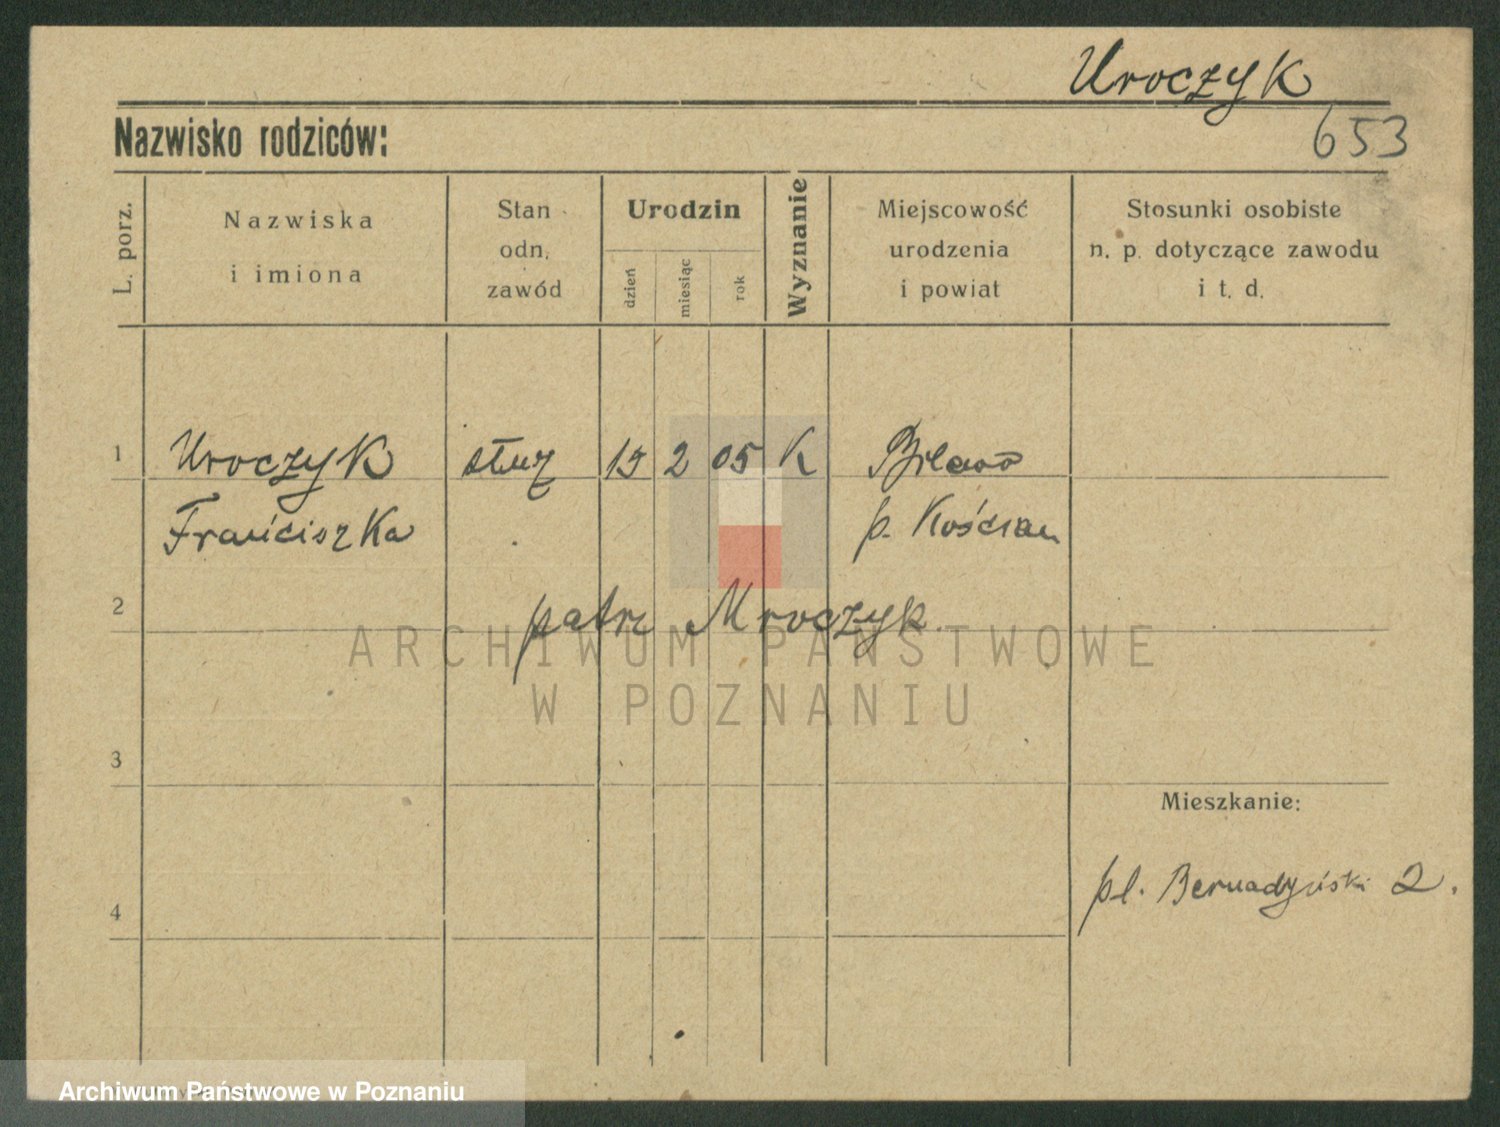 Uroczyk
Nazwisko rodziców:
653
L. porz.
Nazwiska
i imiona
Stan
odn.
zawód
Urodzin
dzień
miesiąc
rok
Wyznanie
Miejscowość
urodzenia
i powiat
Stosunki osobiste
n. p. dotyczące zawodu
i t. d.
1
Uroczyk służ 15 2 05 K
Franciszka p. Kościan
2
patrz Mroczyk.
ARCHIWUM PAŃSTWOWE
W POZNANIU
3
Mieszkanie:
pl. Bernadyński 2.
4
Archiwum Państwowe w Poznaniu